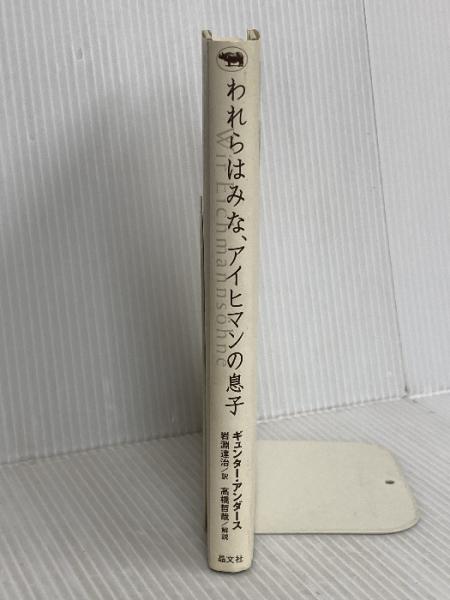 われらはみな、アイヒマンの息子
Wir Eichmannsöhne
ギュンター・アンダース
岩淵達治／訳 高橋哲哉／解説
晶文社